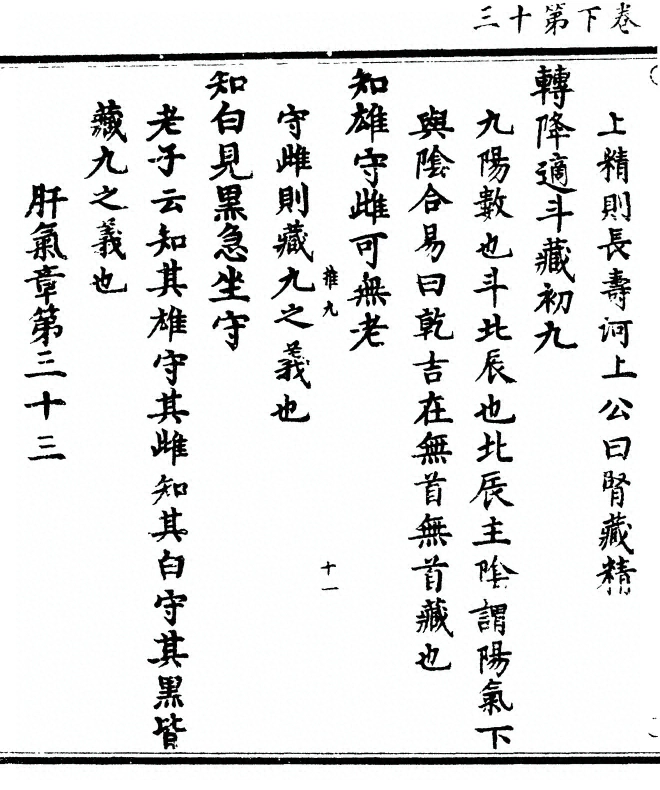 卷下第十三
上精則長壽河上公曰腎藏精
轉降適斗藏初九
九陽數也斗北辰也北辰主陰謂陽氣下
與陰合易曰乾吉在無首無首藏也
知雄守雌可無老
推九
十一
守雌則藏九之義也
知白見黑急坐守
老子云知其雄守其雌知其白守其黑皆
藏九之義也
肝氣章第三十三